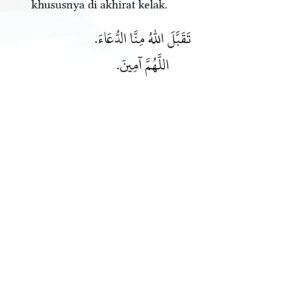 khususnya di akhirat kelak.
تَقَبَّلَ اللهُ مِنَّا الدُّعَاءَ.
اللَّهُمَّ آمِينَ.